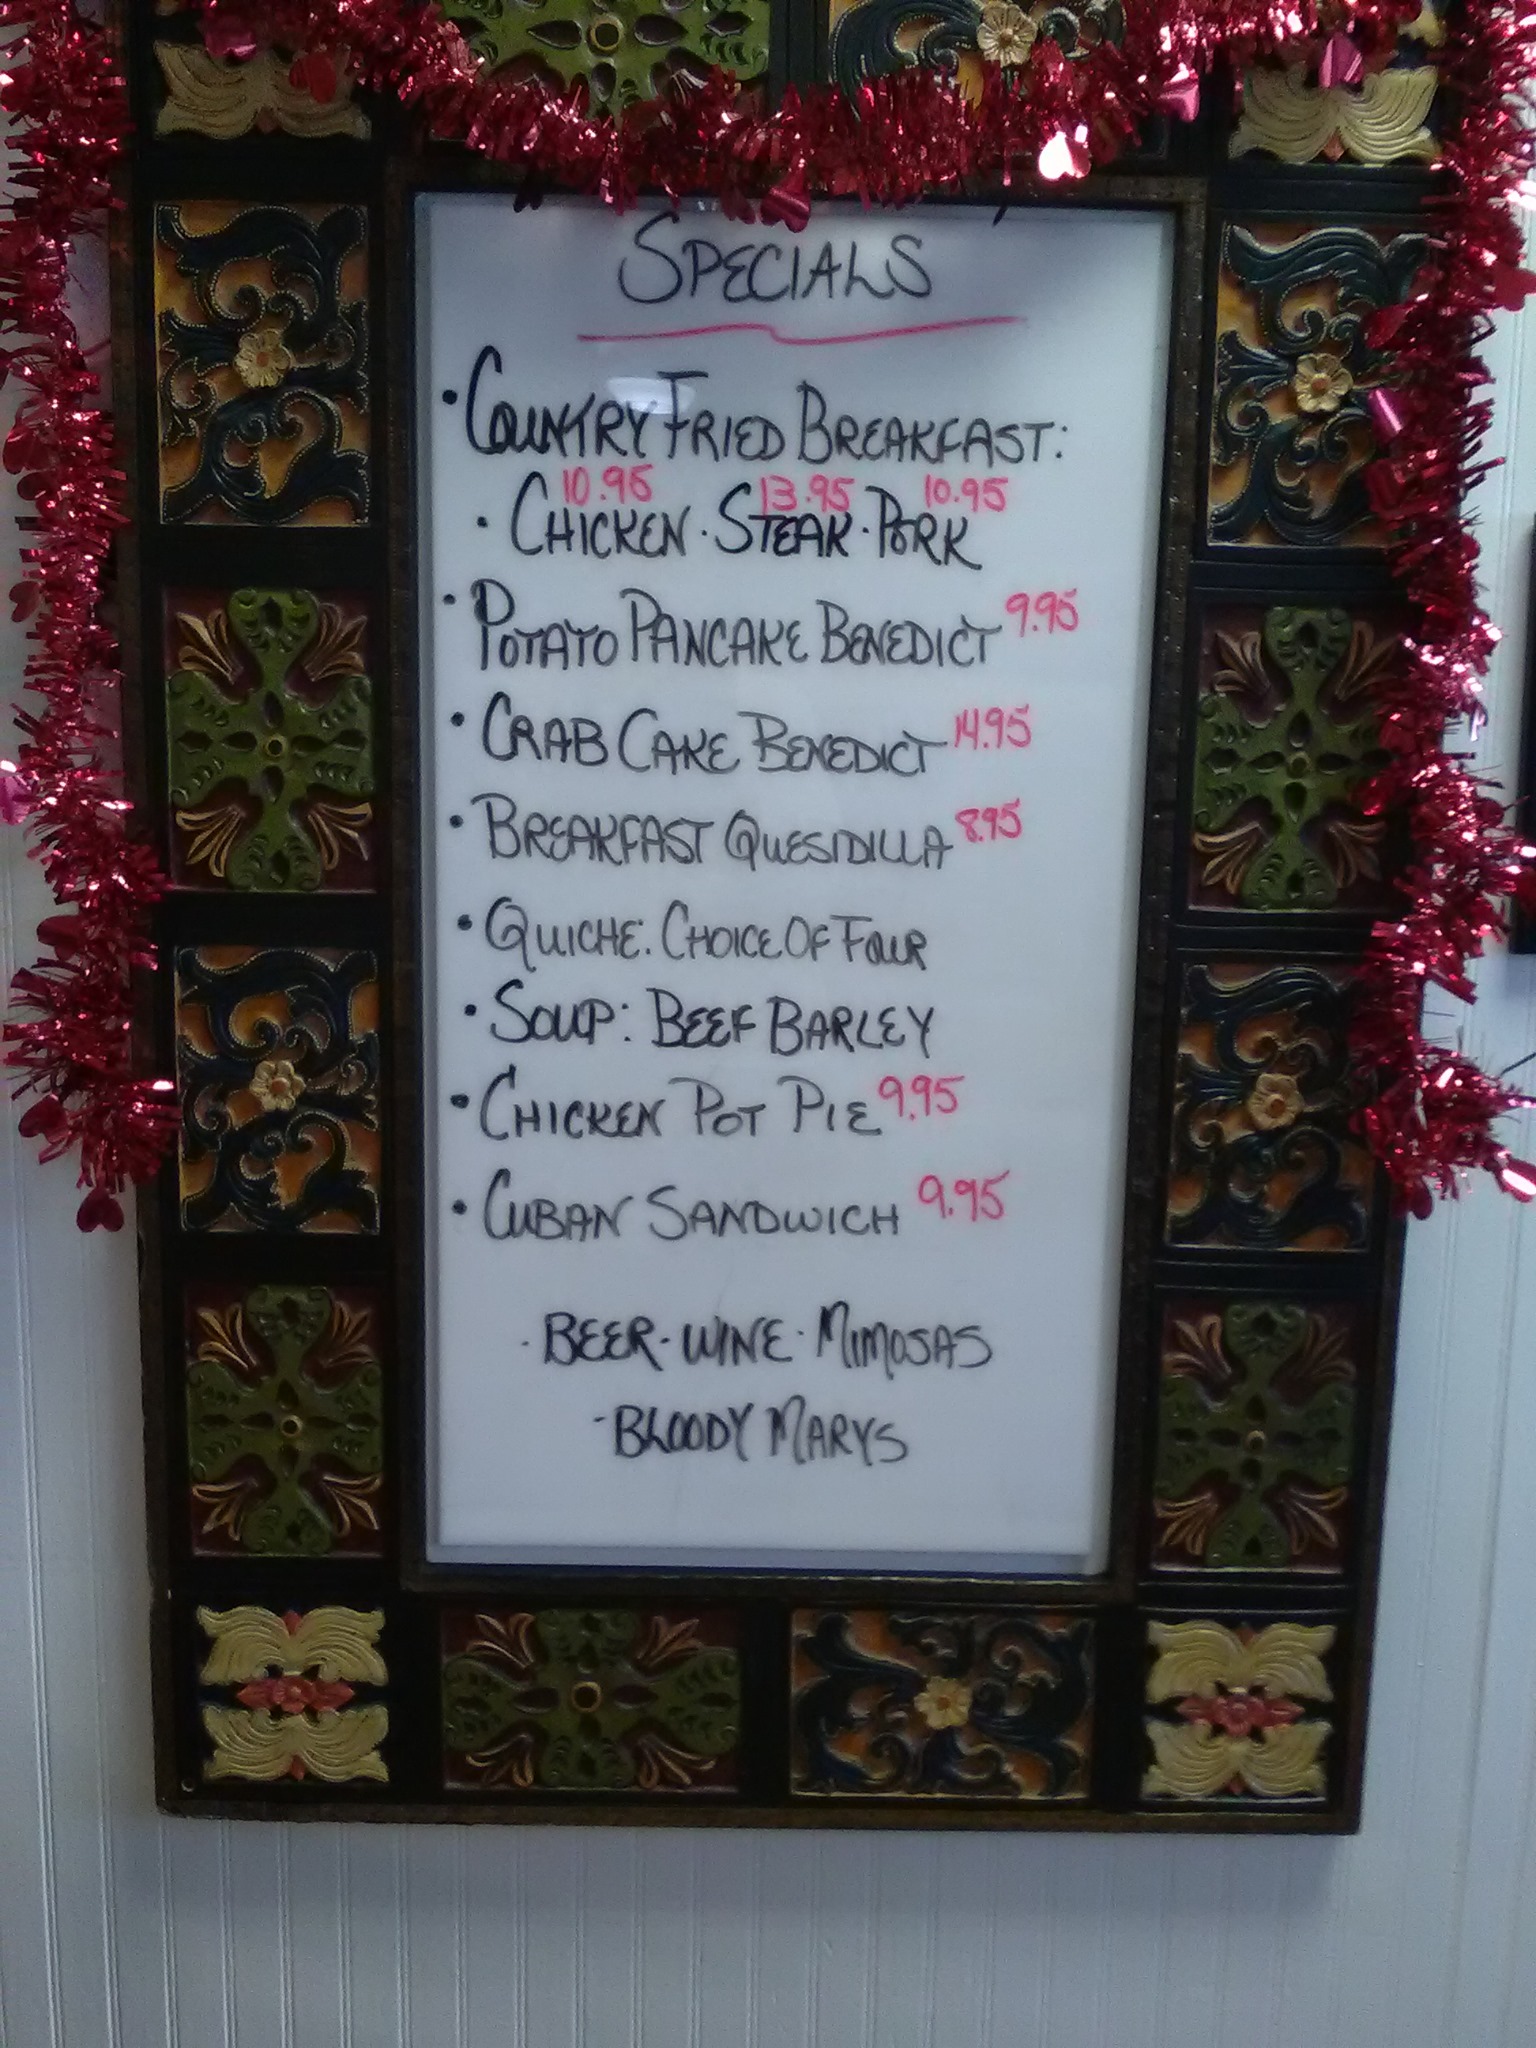 SPECIALS
• COUNTRY FRIED BREAKFAST:
10.95 13.95 10.95
• CHICKEN • STEAK • PORK
• POTATO PANCAKE BENEDICT 9.95
• CRAB CAKE BENEDICT 14.95
• BREAKFAST QUESIDILLA 8.95
• QUICHE: CHOICE OF FOUR
• SOUP: BEEF BARLEY
• CHICKEN POT PIE 9.95
• CUBAN SANDWICH 9.95
• BEER • WINE • MIMOSAS
- BLOODY MARYS